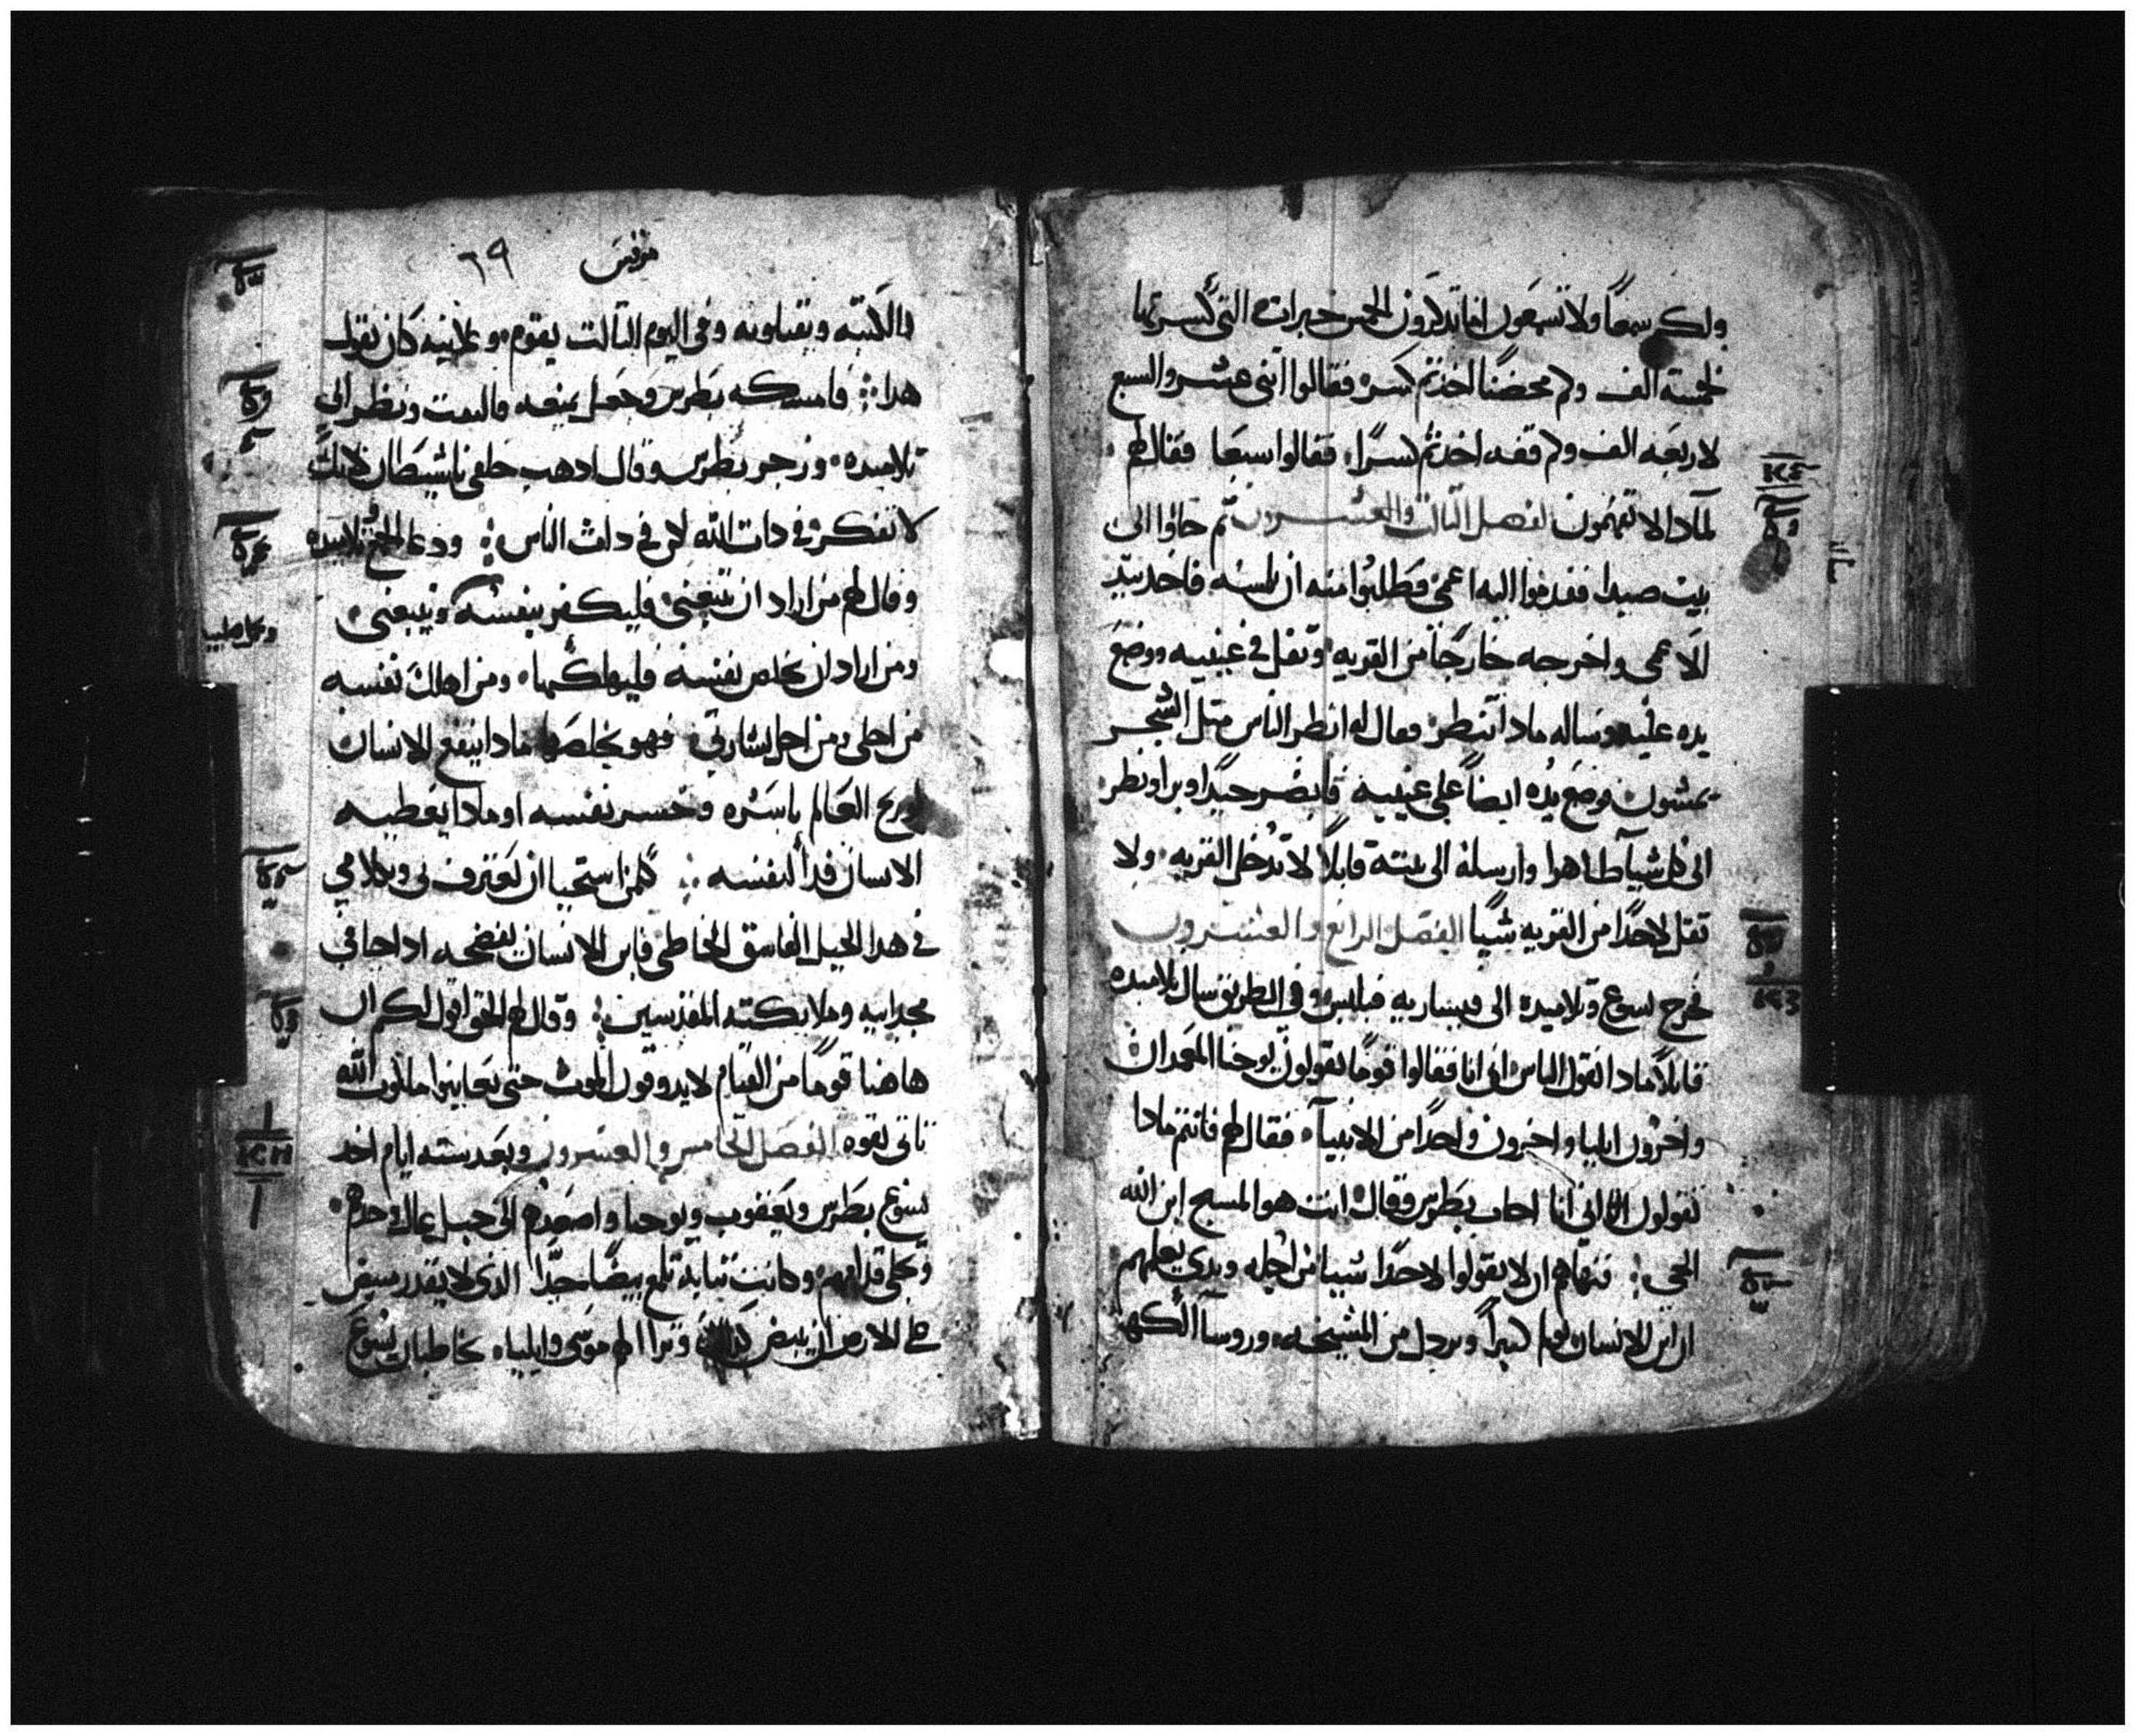 ولكم سمعاً ولا تسمعون اما تدكرون الخمس خبزات التي كسرتها
لخمسة الف وكم محضناً اخدتم كسره فقالوا اتنى عشر والسبع
لاربعه الف وكم قفه اخدتم كسراً فقالوا سبعا فقال لهم
لمادا لا تفهمون الفصل التالت والعشرون تم جاوا الى
بيت صيدا فقدموا اليه اعمى وطلبوا منه ان يلمسه فاخد بيد
الاعمى واخرجه خارجاً من القريه وتفل في عينيه ووضع
يده عليه وساله مادا تنظر فقال له انظر الناس متل الشجر
يمشون فوضع يده ايضاً على عينيه فابصر جيداً وبرا ونظر
الى كل شياً ظاهرا وارسله الى بيته قايلاً لا تدخل القريه ولا
تقل لاحداً من القريه شياً الفصل الرابع والعشرون
فخرج يسوع وتلاميده الى قيساريه فيلبس وفي الطريق سال تلاميده
قايلاً مادا تقول الناس اني انا فقالوا قوماً يقولون يوحنا المعمدان
واخرون ايليا واخرون واحداً من الانبيآء فقال لهم فانتم مادا
تقولون اني انا اجاب بطرس وقال انت هو المسيح ابن الله
الحي فنهاهم ان لا يقولوا لاحداً شيا من اجله وبدى يعلمهم
ان ابن الانسان يولم كتيراً ويردل من المشيخه وروسآ الكهنه
مرقس ٦٩
والكتبه ويقتلونه وفي اليوم التالت يقوم وعلانيه كان يقول
هدا فامسكه بطرس وجعل يمنعه فالتفت ونظر الى
تلاميده وزجر بطرس وقال ادهب خلفي يا شيطان لانك
لا تفكر في دات الله لاكن في دات الناس ودعا الجمع وتلاميده
وقال لهم من اراد ان يتبعني فليكفر بنفسه ويتبعني
ويحمل صليبه
ومن اراد ان يخلص نفسه فليهلكها ومن اهلك نفسه
من اجلي ومن اجل بشارتي فهو يخلصها مادا ينفع الانسان
لو ربح العالم باسره وخسر نفسه او مادا يعطيه
الانسان فدآ لنفسه كلمن استحيا ان يعترف بي وبكلامي
في هدا الجيل الفاسق الخاطي فابن الانسان يفضحه ادا جا في
مجد ابيه وملايكته المقدسين وقال لهم الحق اقول لكم ان
هاهنا قوماً من القيام لا يدوقون الموت حتى يعاينوا ملكوت الله
تاتي بقوه الفصل الخامس والعشرون وبعد سته ايام اخد
يسوع بطرس ويعقوب ويوحنا واصعدهم الى جبل عال وحدهم
وتجلى قدامهم وكانت تيابه تلمع بيضاً جدًا الدي لا يقدر مبيض
على الارض ان يبيض وترا لهم موسى وايلياء يخاطبان يسوع